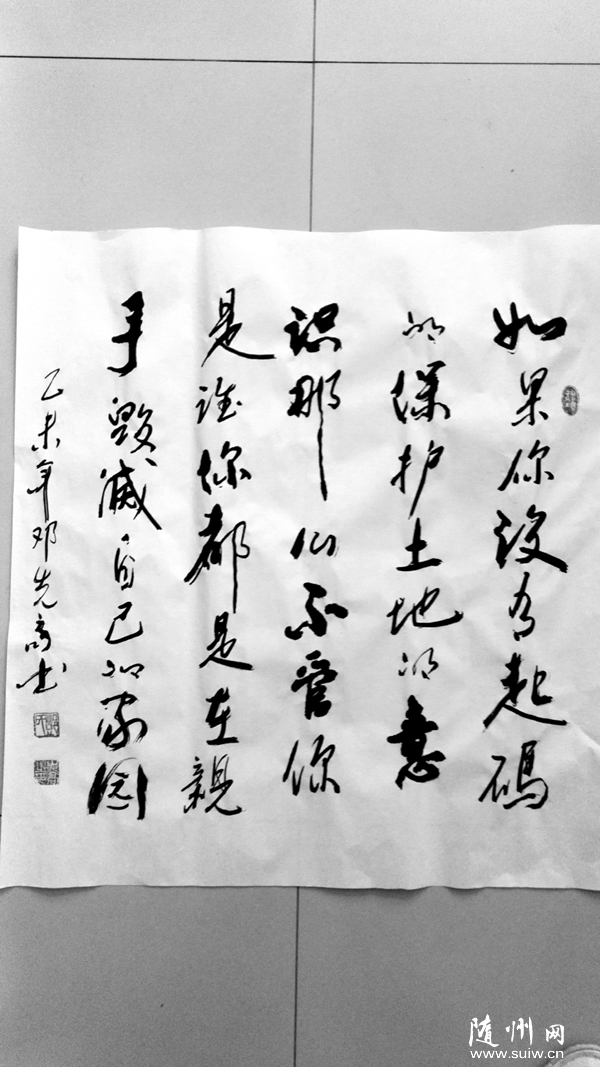 如果你没有起码
的保护土地的意
识那么不管你
是谁你都是在親
手毀滅自己的家园
乙未年邓先高书
随州网
www.suiw.cn